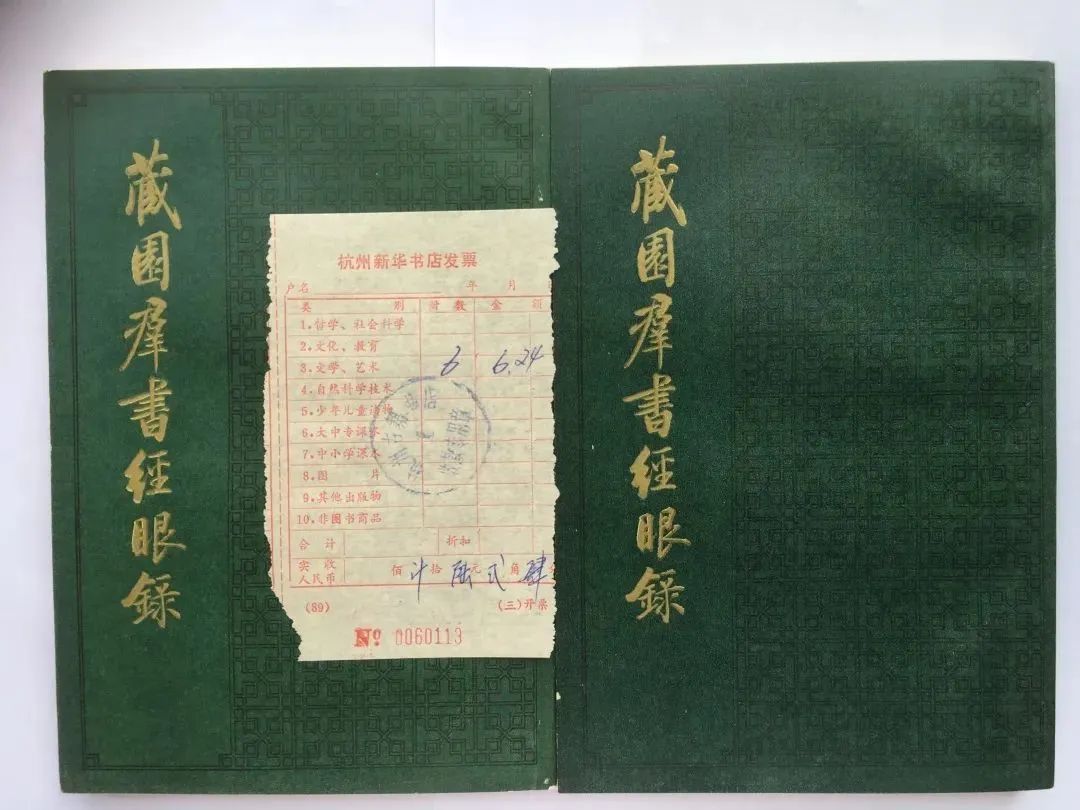 藏園羣書經眼錄
杭州新华书店发票
户名 年 月
类 别 册 数 金 额
1.哲学、社会科学
2.文化、教育
3.文学、艺术 6 6.24
4.自然科学技术
5.少年儿童读物
6.大中专课本
7.中小学课本
8.图 片
9.其他出版物
10.非图书商品
合 计 折扣
实 收
人民币 佰 拾 陆 元 弍 角 肆
(89) (三)开票
№ 0060113
藏園羣書經眼錄